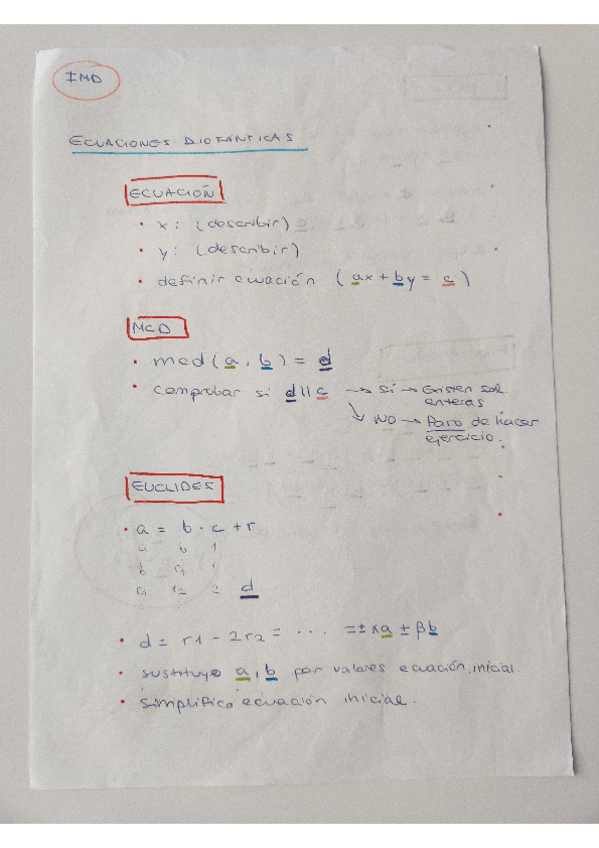 IMD
ECUACIONES DIOFÁNTICAS
ECUACIÓN
• x: (describir)
• y: (describir)
• definir ecuación (ax + by = c)
MCD
• mcd(a, b) = d
• comprobar si d || c → SÍ → Existen sol.
enteras
↳ NO → Paro de hacer
ejercicio.
EUCLIDES
• a = b · c + r
a b 1
b r1 1
r1 r2 2 d
• d = r1 - 2r2 = ... = ± αa ± βb
• sustituyo a, b por valores ecuación inicial.
• simplifico ecuación inicial.